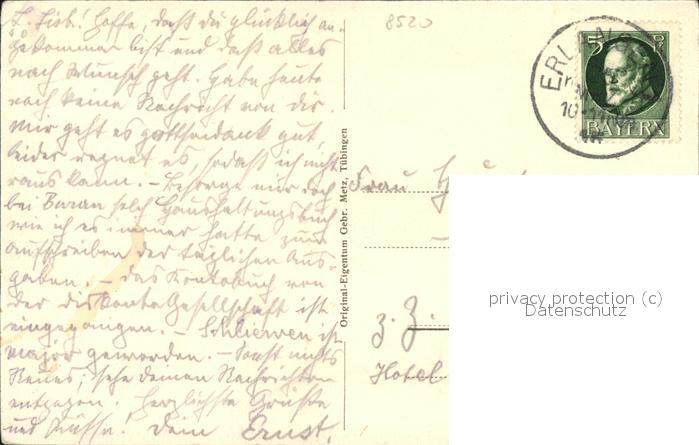 8520
L. Lisb! Hoffe, daß du glücklich an-
gekommen bist und daß alles
nach Wunsch geht. Habe heute
noch keine Nachricht von dir.
Mir geht es gottseidank gut,
leider regnet es, sodaß ich nicht
raus kann. – Besorge mir doch
bei solch Haushaltungsbuch
wie ich es immer hatte zum
Aufschreiben der täglichen Aus-
gaben. – Das Kontobuch von
der Diskonto Gesellschaft ist
eingegangen. – ist
Major geworden. – Sonst nichts
Neues; sehe deinen Nachrichten
entgegen. Herzlichste Grüße
und Küsse! Dein Ernst.
Original-Eigentum Gebr. Metz, Tübingen
ERLANGEN
5 Pf
BAYERN
Frau
z. Z.
Hotel
privacy protection (c)
Datenschutz